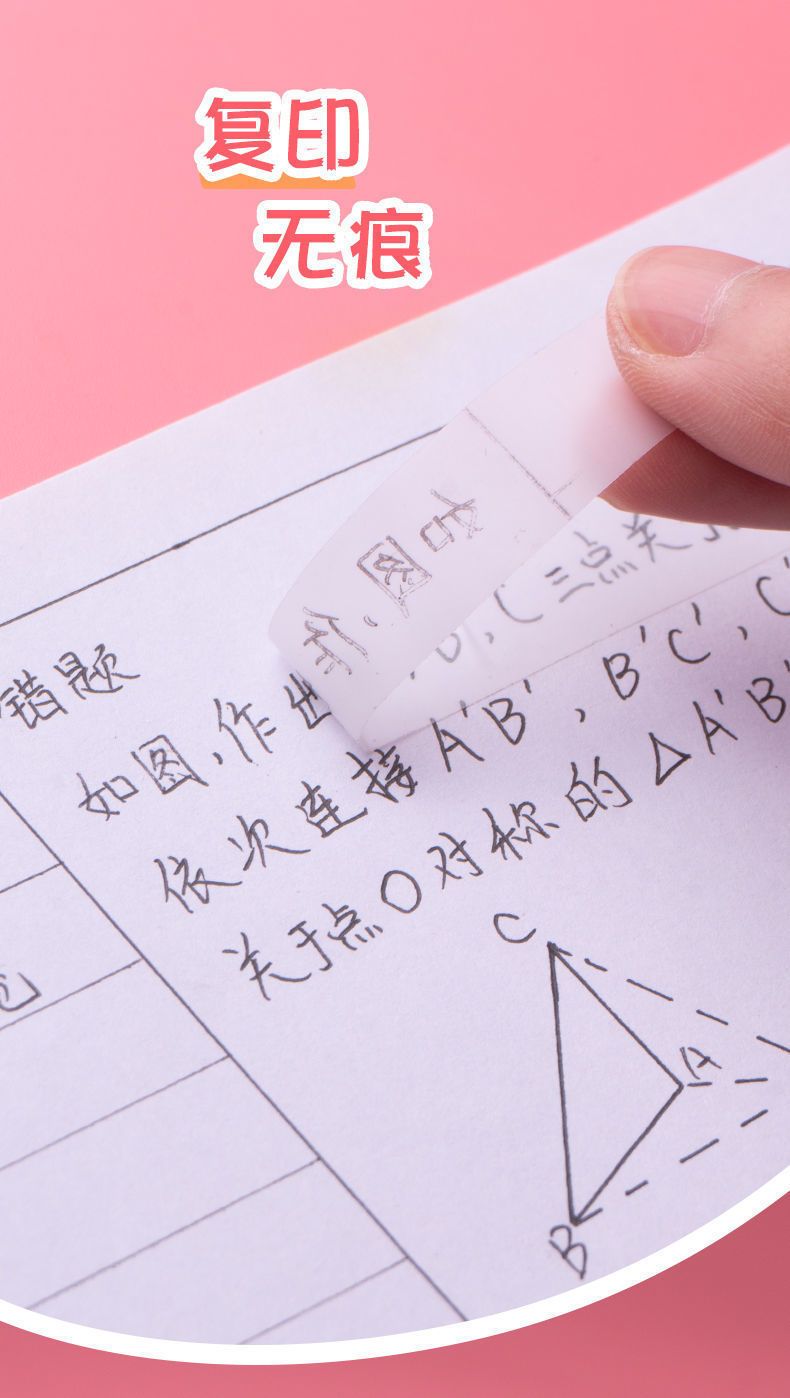 复印
无痕
错题
如图,作出 B', C三点关于
依次连接A'B', B'C', C'
关于点O对称的△A'B'
C
A
B